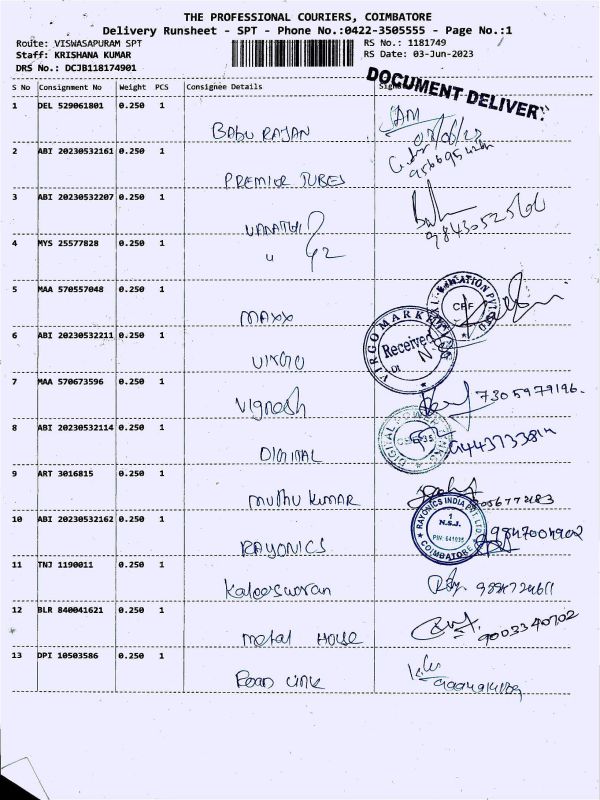 THE PROFESSIONAL COURIERS, COIMBATORE
Delivery Runsheet - SPT - Phone No.:0422-3505555 - Page No.:1
Route: VISWASAPURAM SPT
RS No.: 1181749
Staff: KRISHANA KUMAR
RS Date: 03-Jun-2023
DRS No.: DCJB118174901
DOCUMENT DELIVER
S No Consignment No Weight PCS Consignee Details
1 DEL 529061801 0.250 1
BABU RAJAN
2 ABI 20230532161 0.250 1
PREMIER TUBES
3 ABI 20230532207 0.250 1
9843052566
VANATHI
4 MYS 25577828 0.250 1
5 MAA 570557048 0.250 1
MAXX
6 ABI 20230532211 0.250 1
VIRGO MARK
Received
VIRGO
7 MAA 570673596 0.250 1
Vignesh
7305979196.
8 ABI 20230532114 0.250 1
DIGITAL
DIGITAL
9 ART 3016815 0.250 1
Muthu Kumar
10 ABI 20230532162 0.250 1
RAYONICS INDIA PVT LTD
1
N.S.J.
PIN: 641035
COIMBATORE
9847004902
RAYONICS
11 TNJ 1190011 0.250 1
Kaleeswaran
12 BLR 840041621 0.250 1
9003340702
Metal House
13 DPI 10503586 0.250 1
Road Link